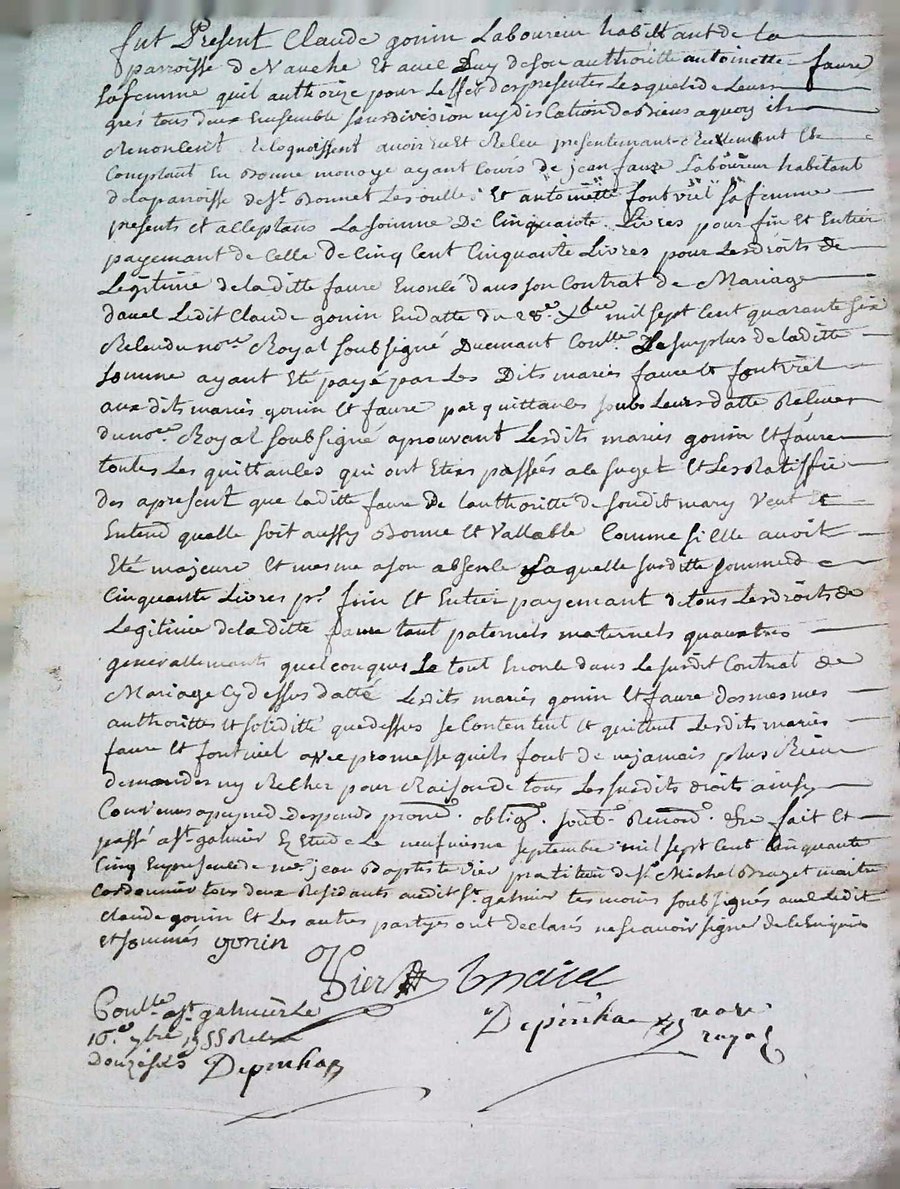 fut Present Claude gonin Laboureur habittant de la
parroisse d Nauche Et avec Luy de son authoritté antoinette faure
sa femme quil authorize pour Leffet des presentes Lesquels de Leurs
grés tous deux Ensemble sans division ny discution de biens a quoy ils
Renoncent Reloquoissent avoir Eu Et Receu presentemant Reellement Et
Comptant En bonne monoye ayant Cours de jean faure Laboureur habitant
de la parroisse de St. Bonnet Les oulles Et antoinette fontviel sa femme
presents et acceptans La somme De Cinquante Livres pour fin Et Entier
payemant de Celle De Cinq Cent Cinquante Livres pour Les droits de
Legitime de la ditte faure Enoncé dans son Contrat de Mariage
d'avec Ledit Claude gonin En datte du 28e. Xbre mil sept Cent quarante six
Receu du nore. Royal soubsigné Duemant Conllé. Le surplus de la ditte
somme ayant Eté payé par Les Dits mariés faure Et fontviel
aux dits mariés gonin Et faure par quittances soubs Leurs datte Receues
du nore. Royal soubsigné aprouvant Lesdits mariés gonin Et faure
toutes Les quittances qui ont Eté passés a Ce suget Et Les Ratiffie
des apresent que laditte faure De l'authoritté de son dit mary Veut Et
Entend quelle soit aussy Bonne Et Vallable Comme si Elle avoit
Eté majeure Et mesme a son absence Laquelle susditte somme de
Cinquante Livres pr. fin Et Entier payemant de tous Les droits de
Legitime de la ditte faure tant paternels maternels quautres
generallemants quelconques Le tout Enoncé dans Le susdit Contrat de
Mariage Cy dessus datté Lesdits mariés gonin Et faure des mesmes
authorittés Et soliditté que dessus se Contentent Et quittent Lesdits mariés
faure Et fontviel avec promesse quils font de ne jamais plus Rien
demander ny Recher pour Raison de tous Les susdits droits ainsy
Convenus a peyne d despends prome. oblige. soub.e Renon.e &c fait Et
passé a St. galmier En Etude Le neufviesme septembre mil sept Cent Cinquante
Cinq En presence de me. jean Baptiste Vier praticien de Sr. Michel Brazet maitre
Cordonnier tous deux Residants audit St. galmier temoins soubsignés avec Ledit
Claude gonin Et Les autres partyes ont declarés ne scavoir signer de Ce Enquis
Et sommés gonin
Vier
Depinhac nore
royal
Conllé a St. galmier Le
16e. 7bre 1755 Receu
douze sols Depinhac